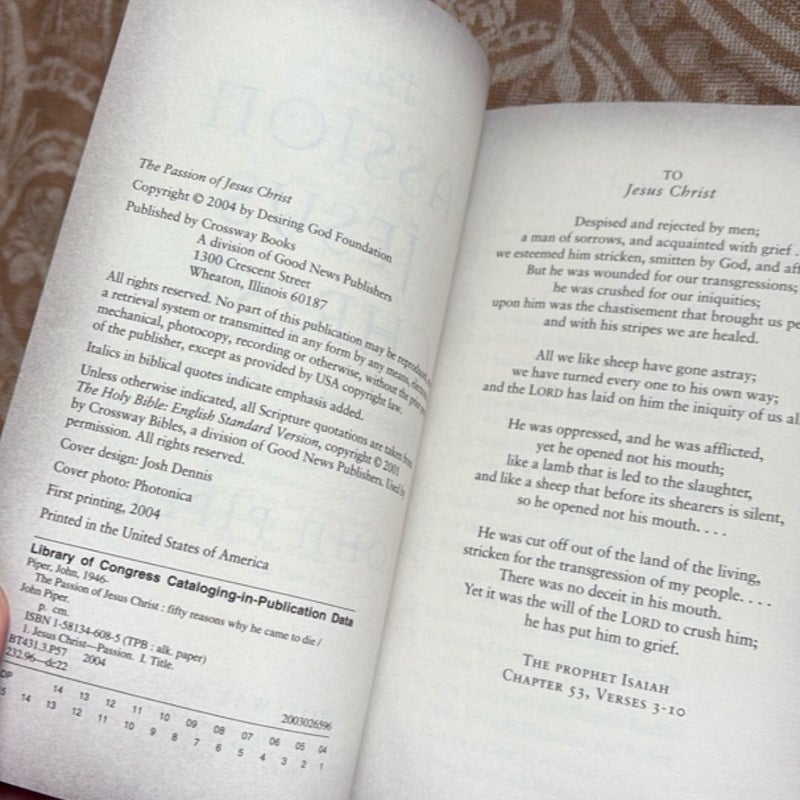 The Passion of Jesus Christ
Copyright © 2004 by Desiring God Foundation
Published by Crossway Books
A division of Good News Publishers
1300 Crescent Street
Wheaton, Illinois 60187
All rights reserved. No part of this publication may be reproduced,
a retrieval system or transmitted in any form by any means,
mechanical, photocopy, recording or otherwise, without the prior
of the publisher, except as provided by USA copyright law.
Italics in biblical quotes indicate emphasis added.
Unless otherwise indicated, all Scripture quotations are taken from
The Holy Bible: English Standard Version, copyright © 2001
by Crossway Bibles, a division of Good News Publishers. Used by
permission. All rights reserved.
Cover design: Josh Dennis
Cover photo: Photonica
First printing, 2004
Printed in the United States of America
Library of Congress Cataloging-in-Publication Data
Piper, John, 1946-
The Passion of Jesus Christ : fifty reasons why he came to die /
John Piper.
p. cm.
ISBN 1-58134-608-5 (TPB : alk. paper)
1. Jesus Christ—Passion. I. Title.
BT431.3.P57 2004
232.96—dc22
2003026596
DP 14 13 12 11 10 09 08 07 06 05 04
15 14 13 12 11 10 9 8 7 6 5 4 3 2 1
TO
Jesus Christ
Despised and rejected by men;
a man of sorrows, and acquainted with grief . .
we esteemed him stricken, smitten by God, and aff
But he was wounded for our transgressions;
he was crushed for our iniquities;
upon him was the chastisement that brought us pe
and with his stripes we are healed.
All we like sheep have gone astray;
we have turned every one to his own way;
and the LORD has laid on him the iniquity of us all
He was oppressed, and he was afflicted,
yet he opened not his mouth;
like a lamb that is led to the slaughter,
and like a sheep that before its shearers is silent,
so he opened not his mouth. . . .
He was cut off out of the land of the living,
stricken for the transgression of my people. . . .
There was no deceit in his mouth.
Yet it was the will of the LORD to crush him;
he has put him to grief.
THE PROPHET ISAIAH
CHAPTER 53, VERSES 3-10